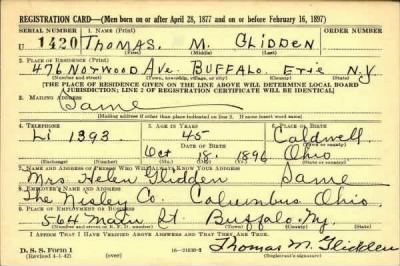 REGISTRATION CARD—(Men born on or after April 28, 1877 and on or before February 16, 1897)
SERIAL NUMBER 1. NAME (Print) ORDER NUMBER
U 1420 THOMAS. M. GLIDDEN
2. PLACE OF RESIDENCE (Print)
476 NORWOOD AVE. BUFFALO. ERIE N.Y
(Number and street) (Town, township, village, or city) (County) (State)
[THE PLACE OF RESIDENCE GIVEN ON THE LINE ABOVE WILL DETERMINE LOCAL BOARD
JURISDICTION; LINE 2 OF REGISTRATION CERTIFICATE WILL BE IDENTICAL]
3. MAILING ADDRESS
Same
[Mailing address if other than place indicated on line 2. If same insert word same]
4. TELEPHONE 5. AGE IN YEARS 6. PLACE OF BIRTH
Li 1393 45 Caldwell
DATE OF BIRTH (Town or county)
Oct 18, 1896 Ohio
(Exchange) (Number) (Mo.) (Day) (Yr.) (State or country)
7. NAME AND ADDRESS OF PERSON WHO WILL ALWAYS KNOW YOUR ADDRESS
Mrs Helen Glidden Same
8. EMPLOYER'S NAME AND ADDRESS
The Nisley Co. Columbus Ohio.
9. PLACE OF EMPLOYMENT OR BUSINESS
564 Main St. Buffalo Ny.
(Number and street or R. F. D. number) (Town) (County) (State)
I AFFIRM THAT I HAVE VERIFIED ABOVE ANSWERS AND THAT THEY ARE TRUE.
D. S. S. Form 1
(Revised 4-1-42) (over) 16—21630-2 Thomas M. Glidden
(Registrant's signature)